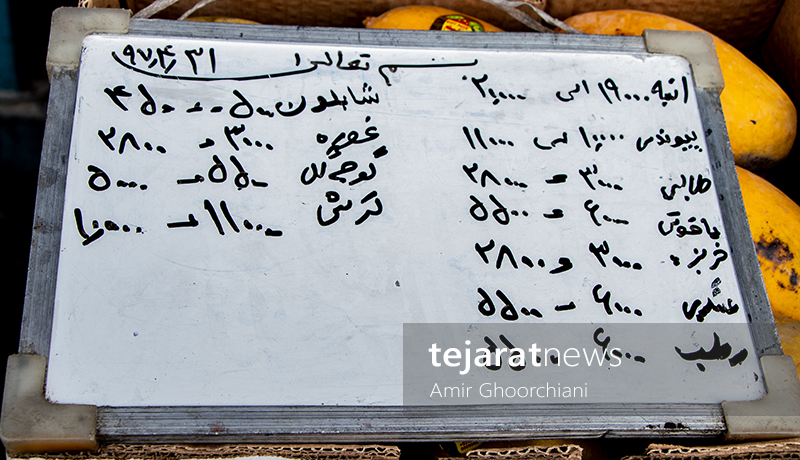 بسم تعالی ۹۷/۴/۳۱
انبه ۱۹۰۰۰ الی ۲۰۰۰۰
پیوندی ۱۰۰۰۰ الی ۱۱۰۰۰
طالبی ۳۰۰۰ - ۲۸۰۰
یاقوتی ۶۰۰۰ - ۵۵۰۰
خربزه ۳۰۰۰ و ۲۸۰۰
عسگری ۶۰۰۰ - ۵۵۰۰
رطب ۶۰۰۰
شابلون ۵۰۰۰ - ۴۵۰۰
غوره ۳۰۰۰ و ۲۸۰۰
گوجه ۵۵۰۰ - ۵۰۰۰
ترش ۱۱۰۰۰ - ۱۰۵۰۰
tejaratnews
Amir Ghoorchiani